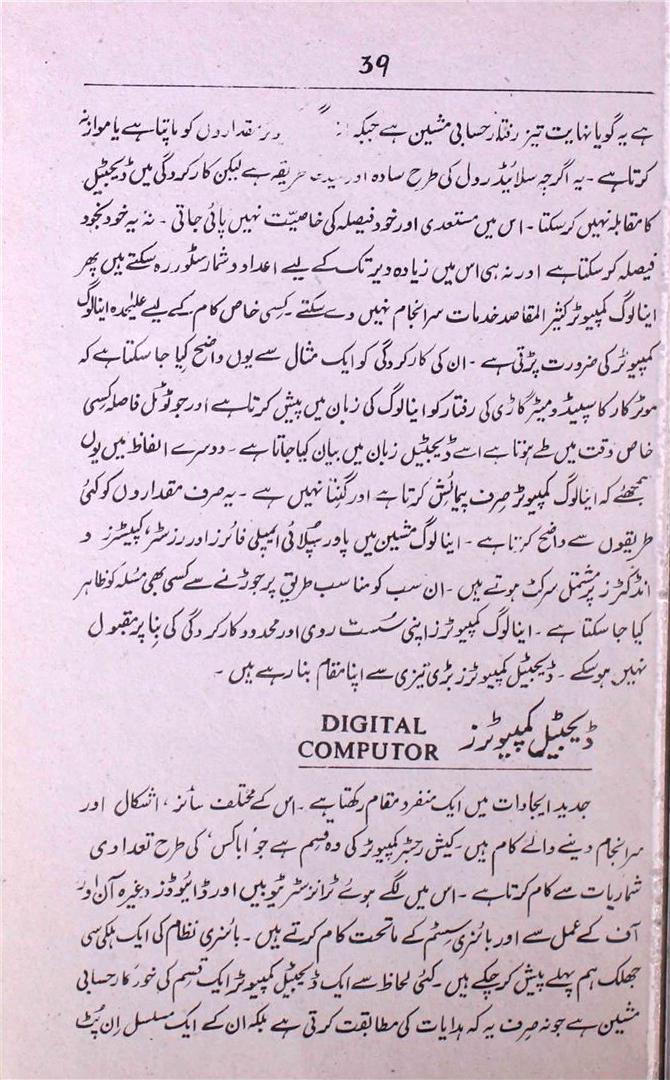 39
ہے یہ گویا نہایت تیز رفتار حسابی مشین ہے جبکہ مقداروں کو ماپتا ہے یا موازنہ
کرتا ہے ۔ یہ اگرچہ سلائیڈ رول کی طرح سادہ اور طریقہ ہے لیکن کارکردگی میں ڈیجیٹل
کا مقابلہ نہیں کر سکتا ۔ اس میں مستعدی اور خود فیصلہ کی خاصیّت نہیں پائی جاتی ۔ نہ یہ خود بخود
فیصلہ کر سکتا ہے اور نہ ہی اس میں زیادہ دیر تک کے لیے اعداد و شمار سٹور رہ سکتے ہیں پھر
اینالوگ کمپیوٹر کثیر المقاصد خدمات سرانجام نہیں دے سکتے ۔ کسی خاص کام کے لیے علیٰحدہ اینالوگ
کمپیوٹر کی ضرورت پڑتی ہے ۔ ان کی کارکردگی کو ایک مثال سے یوں واضح کیا جا سکتا ہے کہ
موٹر کار کا سپیڈو میٹر گاڑی کی رفتار کو اینالوگ کی زبان میں پیش کرتا ہے اور جو ٹوٹل فاصلہ کسی
خاص وقت میں طے ہوتا ہے اسے ڈیجیٹل زبان میں بیان کیا جاتا ہے ۔ دوسرے الفاظ میں یوں
سمجھئے کہ اینالوگ کمپیوٹر صرف پیمائش کرتا ہے اور گنتا نہیں ہے ۔ یہ صرف مقداروں کو کئی
طریقوں سے واضح کرتا ہے ۔ اینالوگ مشین میں پاور سپلائی ایمپلی فائرز اور رزسٹر، کپیسٹرز و
انڈکٹرز پر مشتمل سرکٹ ہوتے ہیں ۔ ان سب کو مناسب طریق پر جوڑنے سے کسی بھی مسئلہ کو ظاہر
کیا جا سکتا ہے ۔ اینالوگ کمپیوٹرز اپنی سُست روی اور محدود کارکردگی کی بنا پر مقبول
نہیں ہو سکے ۔ ڈیجیٹل کمپیوٹرز بڑی تیزی سے اپنا مقام بنا رہے ہیں ۔
ڈیجیٹل کمپیوٹرز DIGITAL
COMPUTOR
جدید ایجادات میں ایک منفرد مقام رکھتا ہے ۔ اس کے مختلف سائز ، اشکال اور
سرانجام دینے والے کام ہیں ۔ کیش رجسٹر کمپیوٹر کی وہ قسم ہے جو 'اباکس' کی طرح تعدادی
شماریات سے کام کرتا ہے ۔ اس میں لگے ہوئے ٹرانزسٹر ٹیوبیں اور ڈائیوڈز وغیرہ آن اور
آف کے عمل سے اور بائنری سسٹم کے ماتحت کام کرتے ہیں ۔ بائنری نظام کی ایک ہلکی سی
جھلک ہم پہلے پیش کر چکے ہیں ۔ کئی لحاظ سے ایک ڈیجیٹل کمپیوٹر ایک قسم کی خود کار حسابی
مشین ہے جو نہ صرف یہ کہ ہدایات کی مطابقت کرتی ہے بلکہ ان کے ایک مسلسل اِن پُٹ